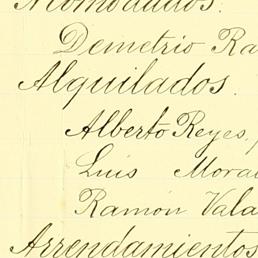 Acomodados.
Demetrio Ra
Alquilados.
Alberto Reyes,
Luis Mora
Ramón Vala
Arrendamientos